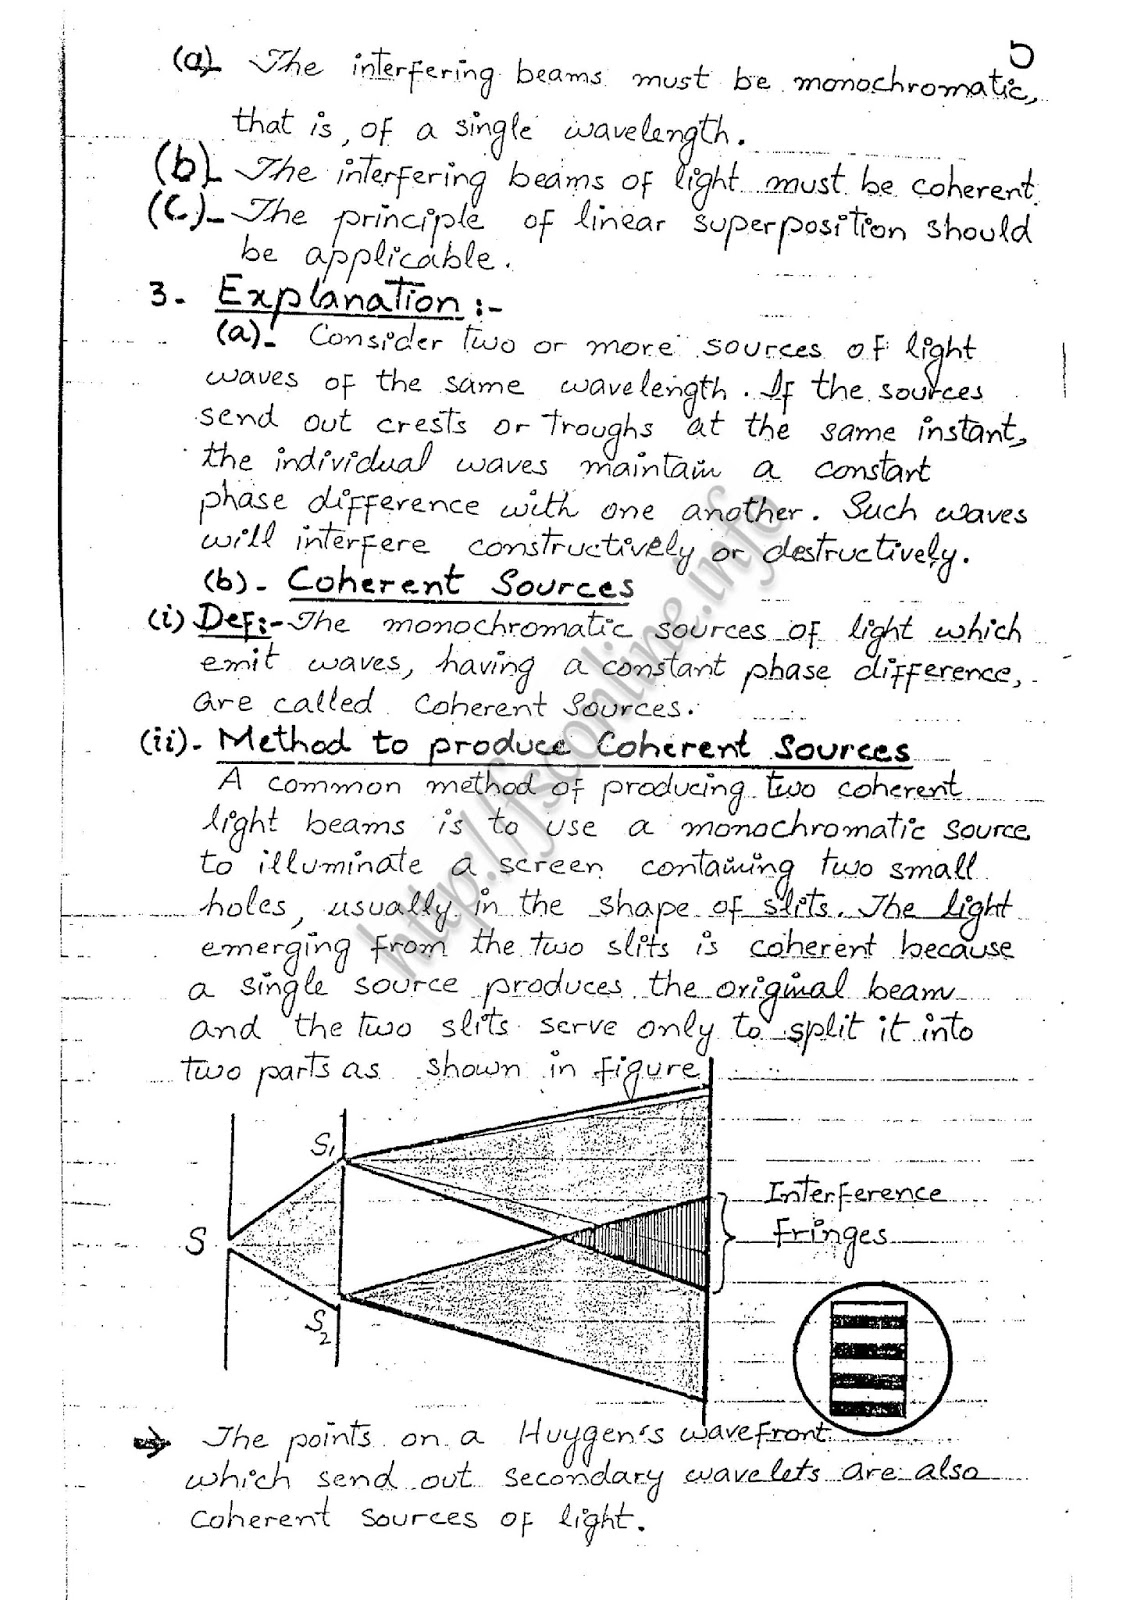 5
(a) The interfering beams must be monochromatic,
that is, of a single wavelength.
(b) The interfering beams of light must be coherent.
(c)- The principle of linear superposition should
be applicable.
3- Explanation:-
(a)- Consider two or more sources of light
waves of the same wavelength. If the sources
send out crests or troughs at the same instant,
the individual waves maintain a constart
phase difference with one another. Such waves
will interfere constructively or destructively.
(b)- Coherent Sources
(i) Def:- The monochromatic sources of light which
emit waves, having a constant phase difference,
are called Coherent Sources.
(ii)- Method to produce Coherent Sources
A common method of producing two coherent
light beams is to use a monochromatic source
to illuminate a screen containing two small
holes, usually in the shape of slits. The light
emerging from the two slits is coherent because
a single source produces the original beam
and the two slits serve only to split it into
two parts as shown in figure
S1
Interference
Fringes
S
S2
→ The points on a Huygen's wavefront
which send out secondary wavelets are also
coherent sources of light.
http://fsconline.info